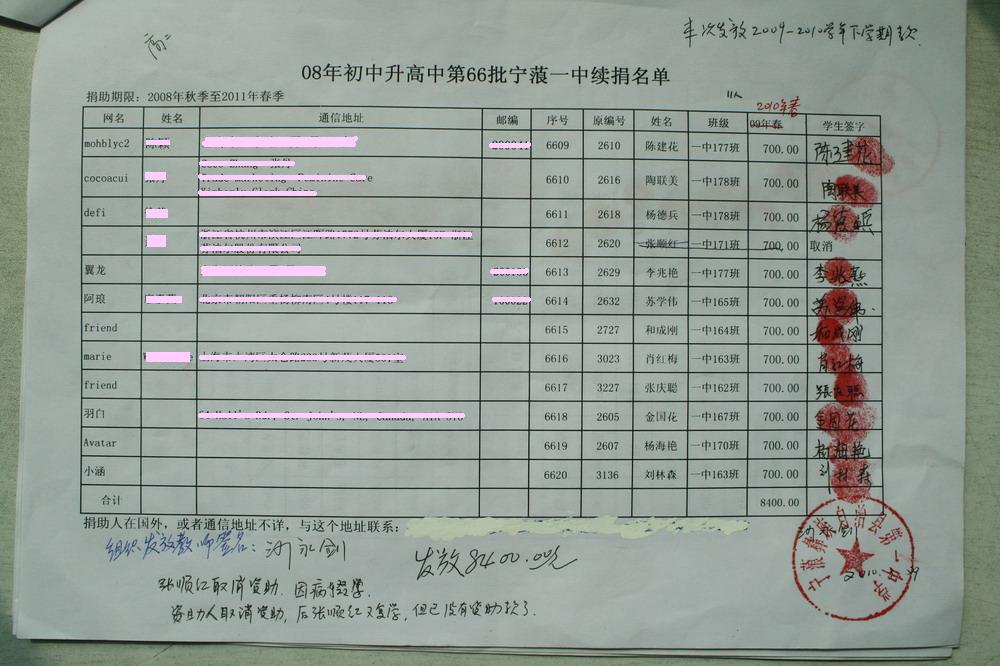 高二
本次发放2009-2010学年下学期款
08年初中升高中第66批宁蒗一中续捐名单
捐助期限: 2008年秋季至2011年春季
11人
2010年春
网名 姓名 通信地址 邮编 序号 原编号 姓名 班级 09年春 学生签字
mohblyc2 6609 2610 陈建花 一中177班 700.00 陈建花
cocoacui 6610 2616 陶联美 一中178班 700.00 陶联美
defi 6611 2618 杨德兵 一中178班 700.00 杨德兵
6612 2620 张顺红 一中171班 700.00 取消
翼龙 6613 2629 李兆艳 一中177班 700.00 李兆燕
阿琅 6614 2632 苏学伟 一中165班 700.00 苏学伟
friend 6615 2727 和成刚 一中164班 700.00 和成刚
marie 6616 3023 肖红梅 一中163班 700.00 肖红梅
friend 6617 3227 张庆聪 一中162班 700.00 张庆聪
羽白 6618 2605 金国花 一中167班 700.00 金国花
Avatar 6619 2607 杨海艳 一中170班 700.00 杨海艳
小涵 6620 3136 刘林森 一中163班 700.00 刘林森
合计 8400.00
捐助人在国外, 或者通信地址不详, 与这个地址联系:
组织发放教师签名: 沙永剑
发放8400.00元
宁蒗彝族自治县第一中学
张顺红取消资助. 因病辍学.
资助人取消资助, 后张顺红又复学, 但已没有资助款了.